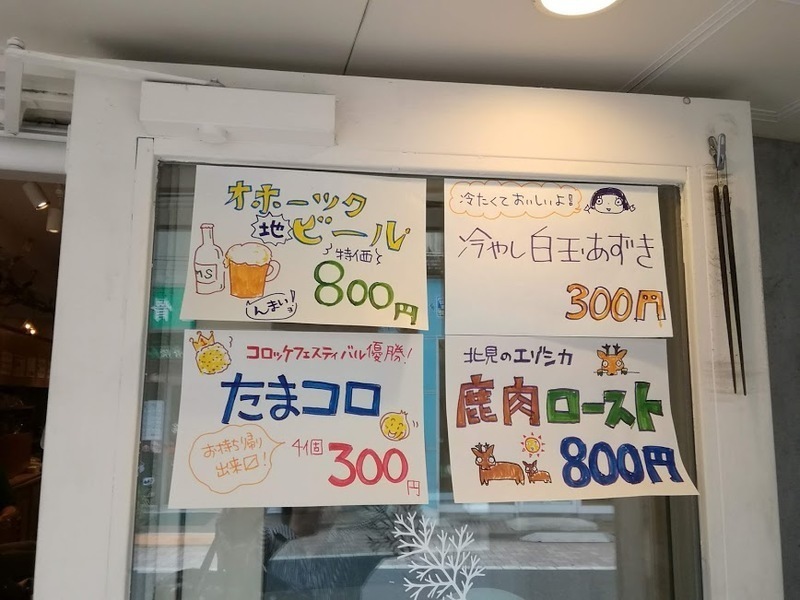 オホーツク
地ビール
特価
800円
んまいっ
S
冷たくておいしいよ!
冷やし白玉あずき
300円
コロッケフェスティバル優勝!
たまコロ
お持ち帰り
出来〼!
4個 300円
北見のエゾシカ
鹿肉ロースト
800円